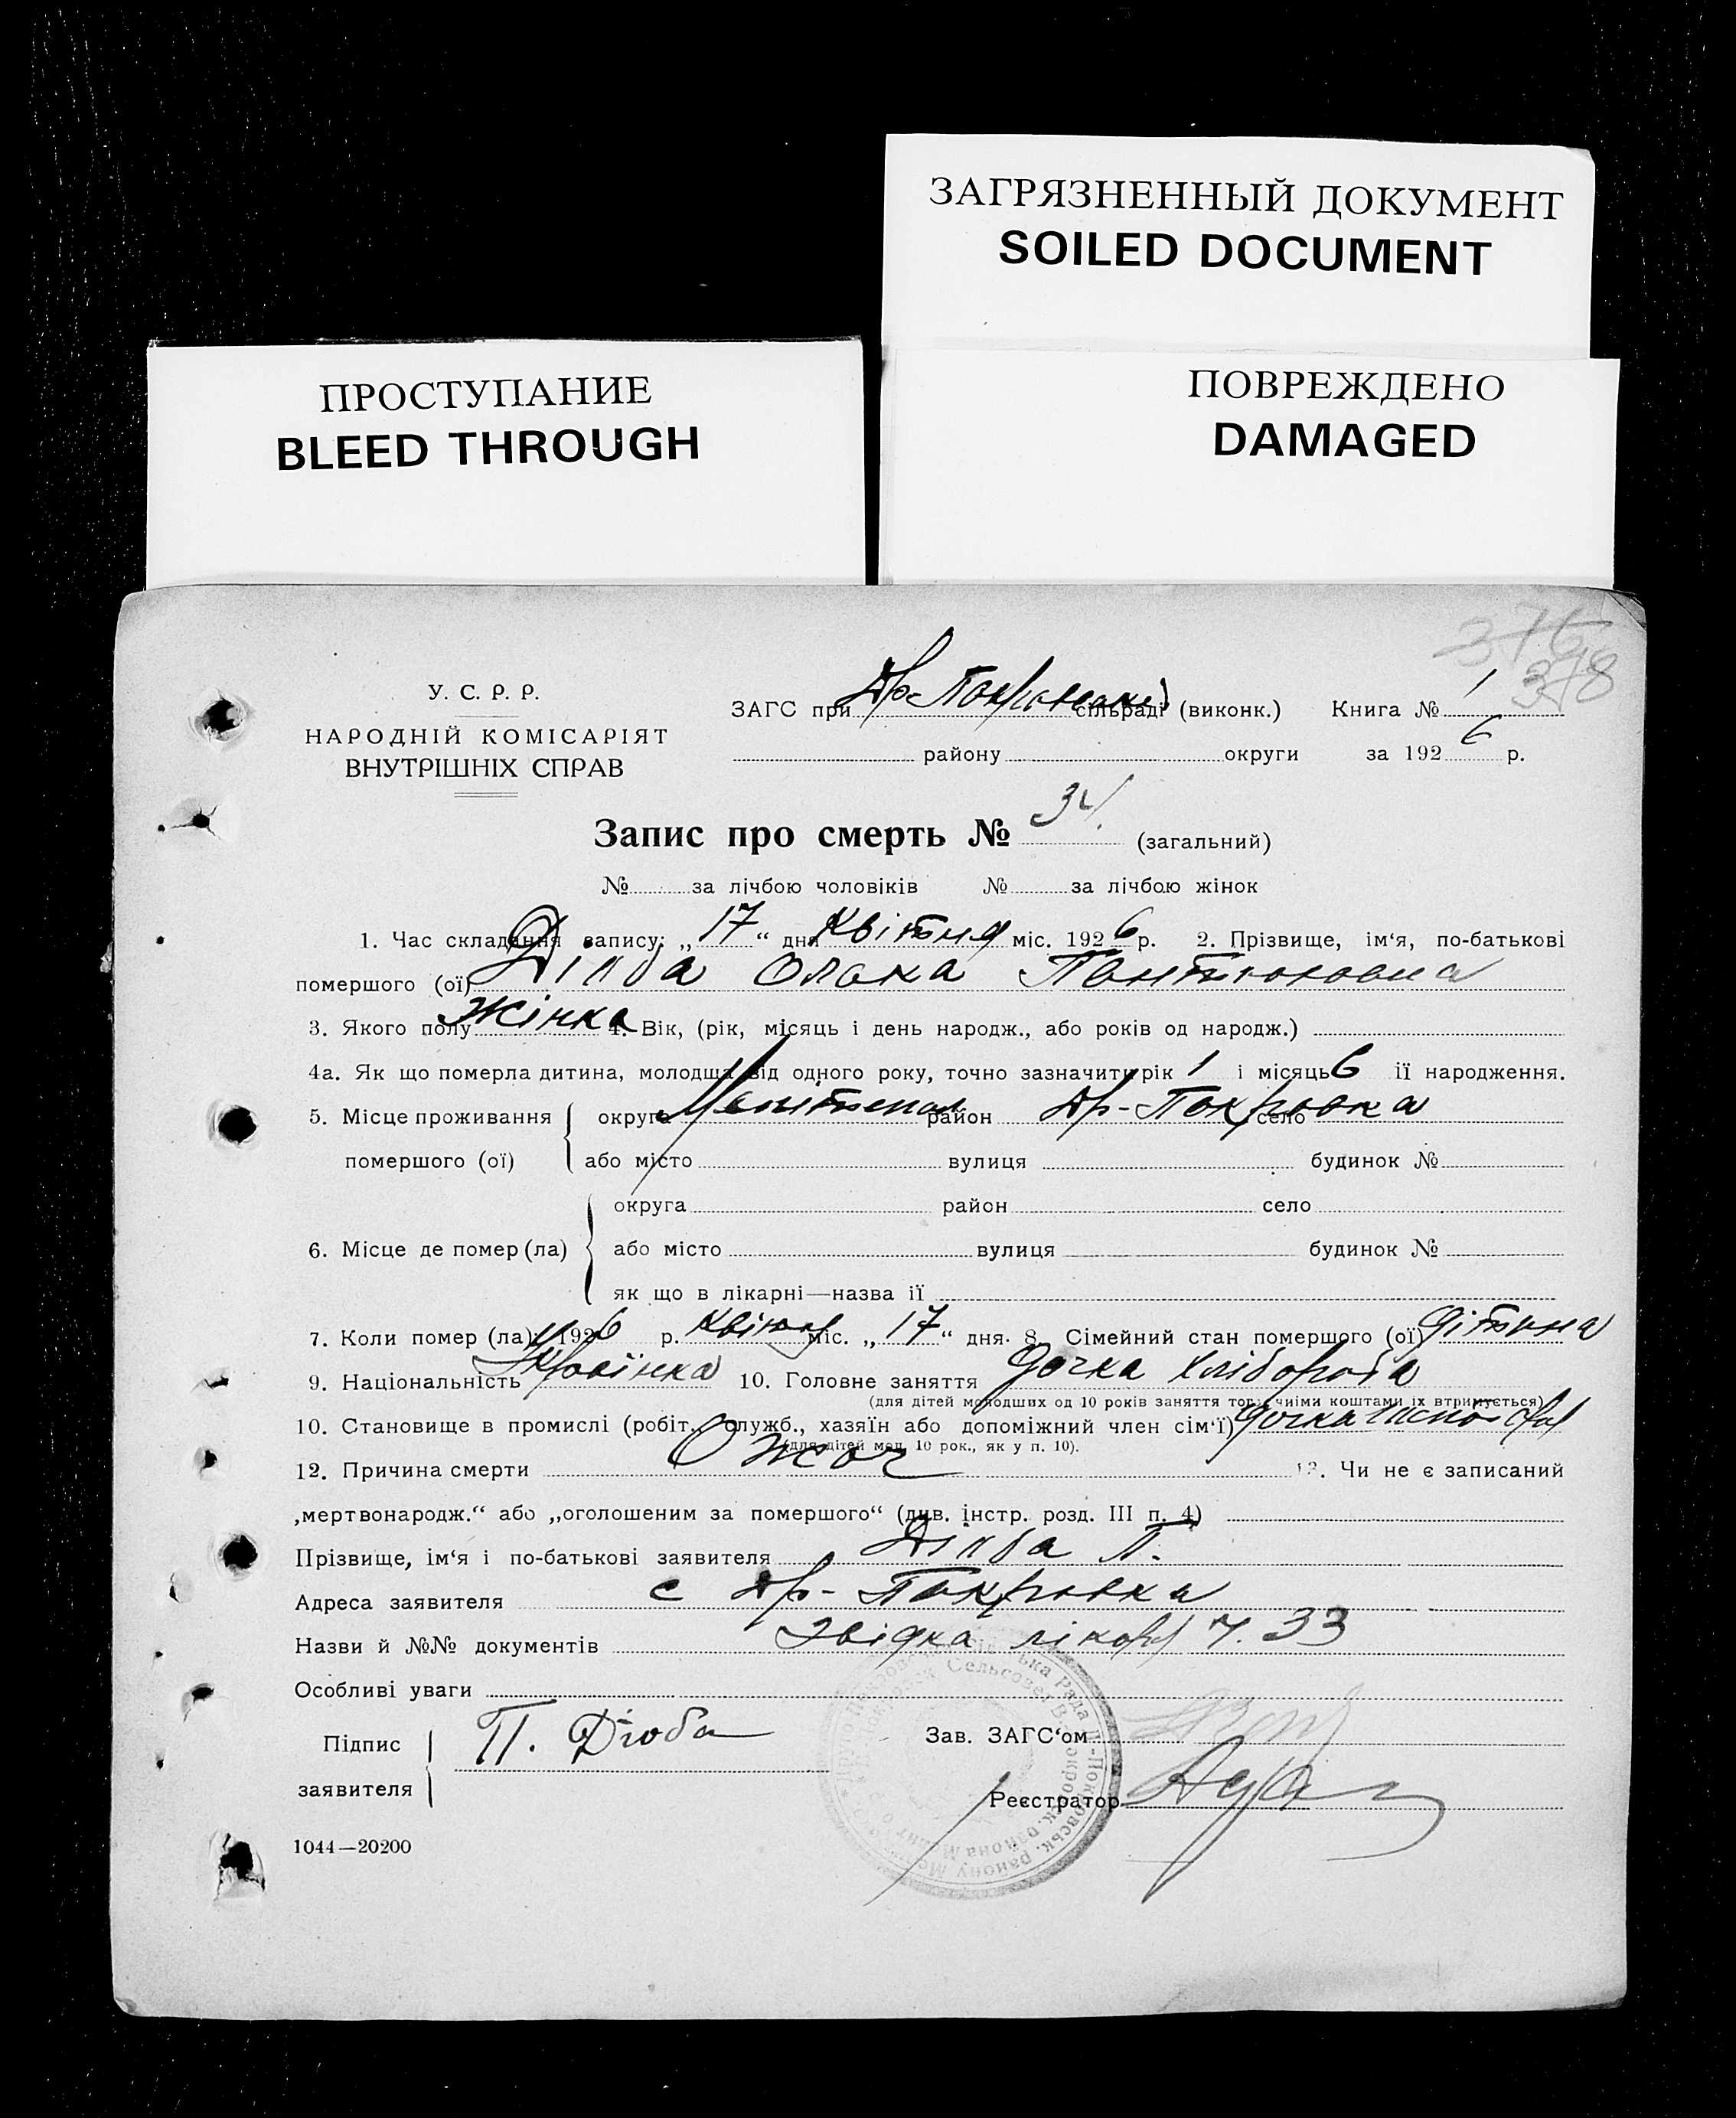 ЗАГРЯЗНЕННЫЙ ДОКУМЕНТ
SOILED DOCUMENT
ПРОСТУПАНИЕ
BLEED THROUGH
ПОВРЕЖДЕНО
DAMAGED
378
У. С. Р. Р.
НАРОДНІЙ КОМІСАРІЯТ
ВНУТРІШНІХ СПРАВ
ЗАГС при Др-Покровській сільраді (виконк.) Книга № 1
району округи за 1926 р.
Запис про смерть № 34. (загальний)
№ за лічбою чоловіків № за лічбою жінок
1. Час складання запису: „17“ дня Квітня міс. 1926 р. 2. Прізвище, ім‘я, по-батькові
помершого (ої) Дзюба
3. Якого полу Жінка 4. Вік, (рік, місяць і день народж., або років од народж.)
4а. Як що померла дитина, молодша від одного року, точно зазначити рік 1 і місяць 6 її народження.
5. Місце проживання округа район Др-Покровка село
помершого (ої) або місто вулиця будинок №
округа район село
6. Місце де помер (ла) або місто вулиця будинок №
як що в лікарні—назва її
7. Коли помер (ла): 1926 р. Квітня міс. „17“ дня. 8. Сімейний стан помершого (ої) дітина
9. Національність Українка 10. Головне заняття дочка хлібороба
(для дітей молодших од 10 років заняття того, чиїми коштами їх втримується)
10. Становище в промислі (робіт., служб., хазяїн або допоміжний член сім‘ї) дочка
(для дітей мол. 10 рок., як у п. 10).
12. Причина смерти Ожог 13. Чи не є записаний
„мертвонародж.“ або „оголошеним за помершого“ (див. інстр. розд. III п. 4)
Прізвище, ім‘я і по-батькові заявителя Дзюба П.
Адреса заявителя с Др-Покровка
Назви й №№ документів Звідка лікаря ч. 33
Особливі уваги
Підпис заявителя П. Дзюба Зав. ЗАГС‘ом
Реєстратор
1044—20200